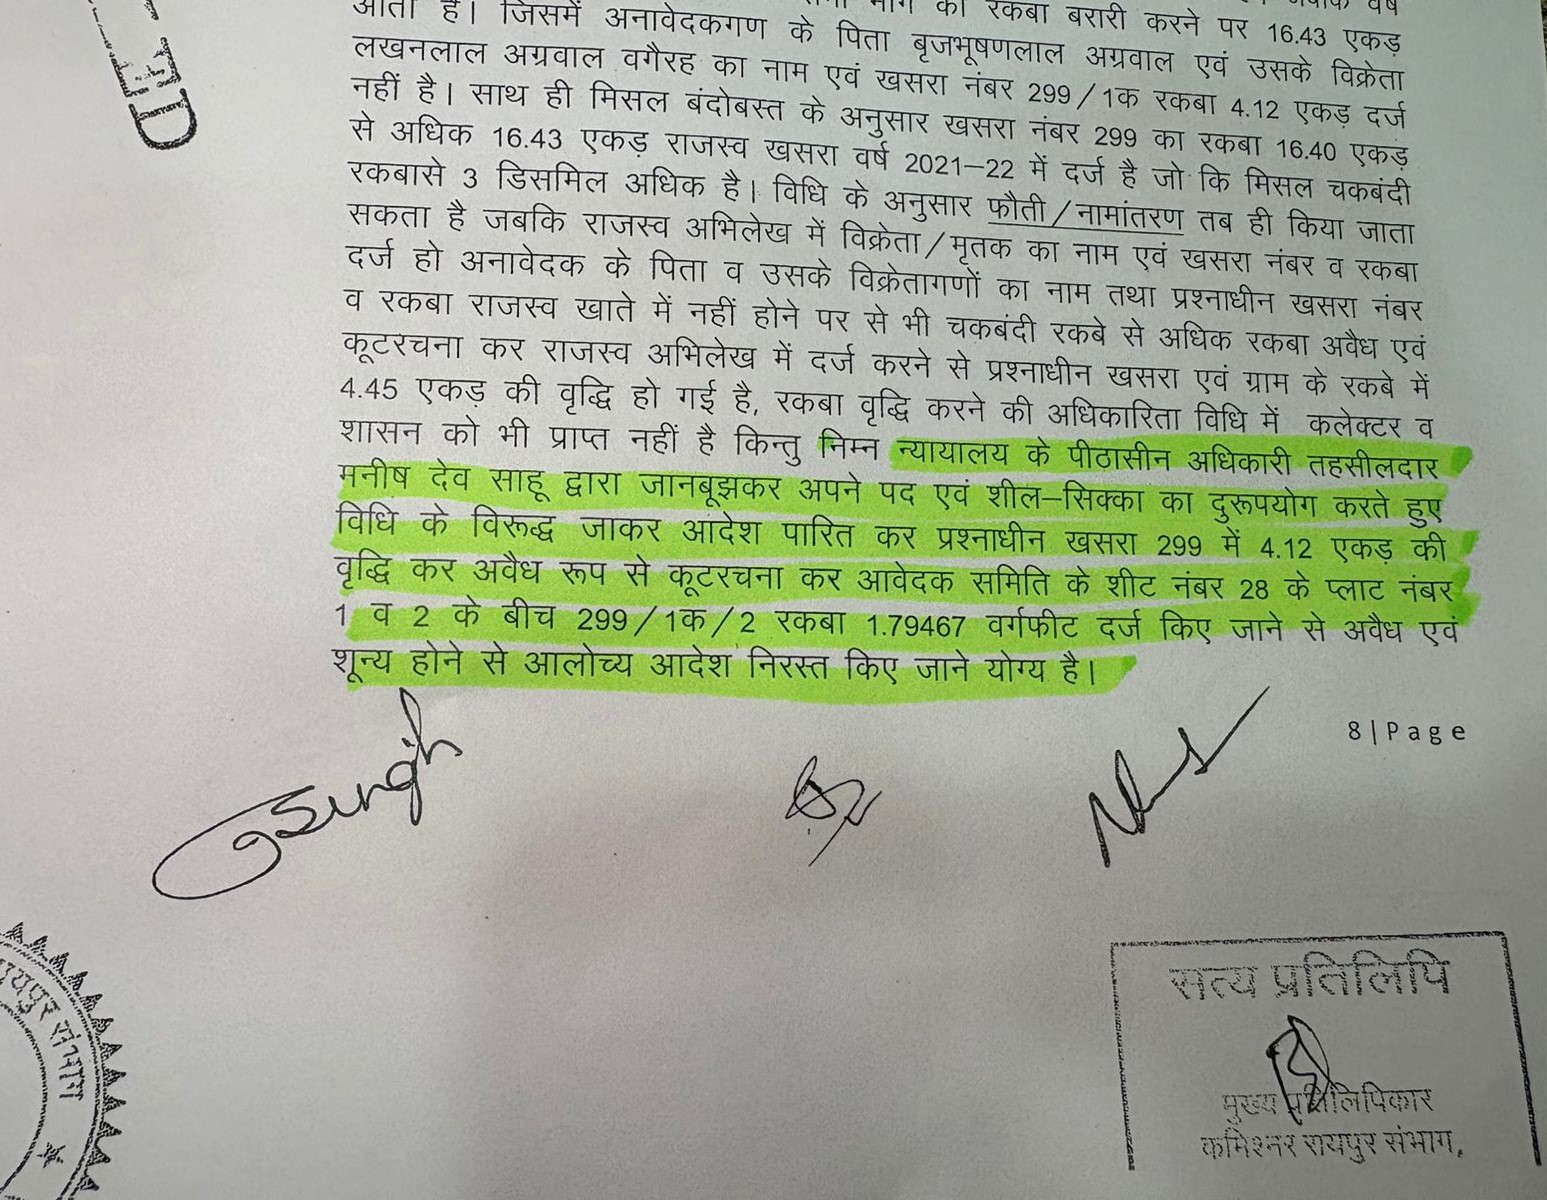 ED
आता है। जिसमें अनावेदकगण के पिता बृजभूषणलाल अग्रवाल एवं उसके विक्रेता
का रकबा बरारी करने पर 16.43 एकड़
लखनलाल अग्रवाल वगैरह का नाम एवं खसरा नंबर 299/1क रकबा 4.12 एकड़ दर्ज
नहीं है। साथ ही मिसल बंदोबस्त के अनुसार खसरा नंबर 299 का रकबा 16.40 एकड़
से अधिक 16.43 एकड़ राजस्व खसरा वर्ष 2021–22 में दर्ज है जो कि मिसल चकबंदी
रकबासे 3 डिसमिल अधिक है। विधि के अनुसार फौती/नामांतरण तब ही किया जाता
सकता है जबकि राजस्व अभिलेख में विक्रेता/मृतक का नाम एवं खसरा नंबर व रकबा
दर्ज हो अनावेदक के पिता व उसके विक्रेतागणों का नाम तथा प्रश्नाधीन खसरा नंबर
व रकबा राजस्व खाते में नहीं होने पर से भी चकबंदी रकबे से अधिक रकबा अवैध एवं
कूटरचना कर राजस्व अभिलेख में दर्ज करने से प्रश्नाधीन खसरा एवं ग्राम के रकबे में
4.45 एकड़ की वृद्धि हो गई है, रकबा वृद्धि करने की अधिकारिता विधि में कलेक्टर व
शासन को भी प्राप्त नहीं है किन्तु निम्न न्यायालय के पीठासीन अधिकारी तहसीलदार
मनीष देव साहू द्वारा जानबूझकर अपने पद एवं शील–सिक्का का दुरूपयोग करते हुए
विधि के विरूद्ध जाकर आदेश पारित कर प्रश्नाधीन खसरा 299 में 4.12 एकड़ की
वृद्धि कर अवैध रूप से कूटरचना कर आवेदक समिति के शीट नंबर 28 के प्लाट नंबर
1 व 2 के बीच 299/1क/2 रकबा 1.79467 वर्गफीट दर्ज किए जाने से अवैध एवं
शून्य होने से आलोच्य आदेश निरस्त किए जाने योग्य है।
8|Page
Singh
सत्य प्रतिलिपि
मुख्य प्रतिलिपिकार
कमिश्नर रायपुर संभाग,
रायपुर संभाग